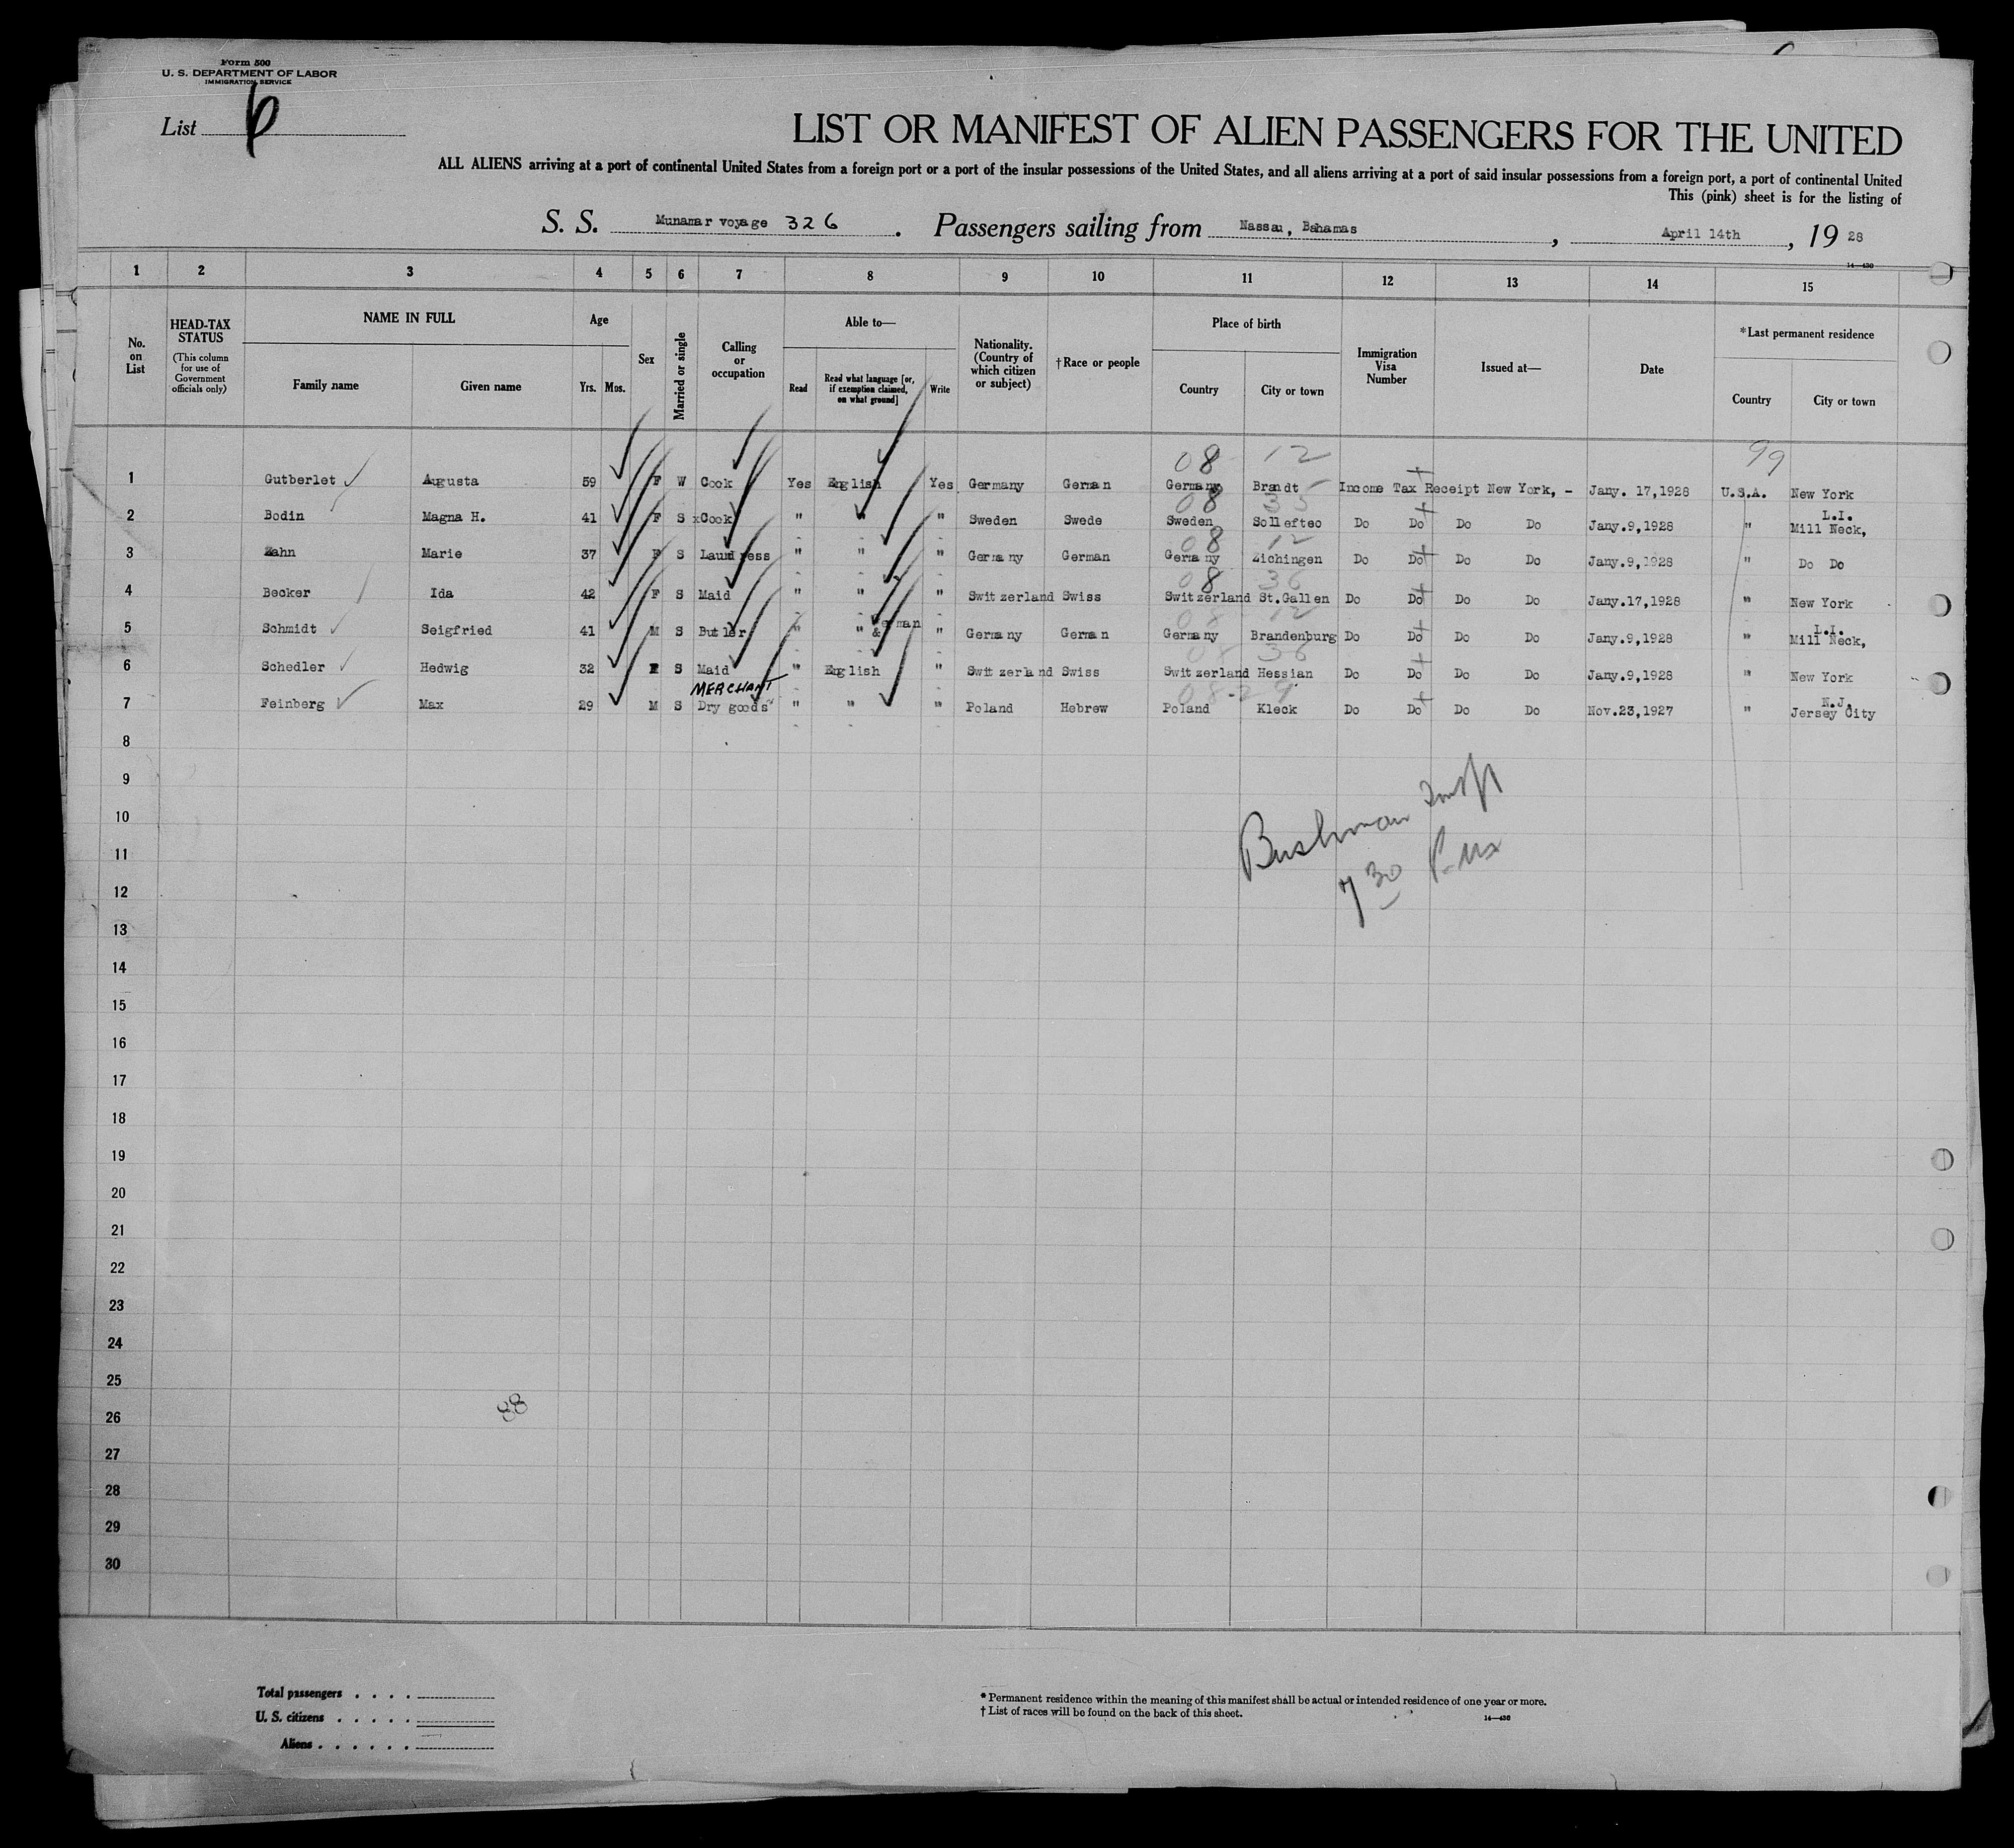 Form 500
U. S. DEPARTMENT OF LABOR
IMMIGRATION SERVICE
List 6
LIST OR MANIFEST OF ALIEN PASSENGERS FOR THE UNITED
ALL ALIENS arriving at a port of continental United States from a foreign port or a port of the insular possessions of the United States, and all aliens arriving at a port of said insular possessions from a foreign port, a port of continental United
This (pink) sheet is for the listing of
S. S. Munamar voyage 326. Passengers sailing from Nassau, Bahamas, April 14th, 19 28
14—430
1 2 3 4 5 6 7 8 9 10 11 12 13 14 15
No. on List
HEAD-TAX STATUS (This column for use of Government officials only)
NAME IN FULL
Family name Given name
Age
Yrs. Mos.
Sex
Married or single
Calling or occupation
Able to—
Read Read what language [or, if exemption claimed, on what ground] Write
Nationality. (Country of which citizen or subject)
†Race or people
Place of birth
Country City or town
Immigration Visa Number
Issued at—
Date
*Last permanent residence
Country City or town
08 12 99
1 Gutberlet Augusta 59 F W Cook Yes English Yes Germany German Germany Brandt Income Tax Receipt New York, - Jany. 17,1928 U.S.A. New York
08 35
2 Bodin Magna H. 41 F S xCook " " " Sweden Swede Sweden Sollefteo Do Do Do Do Jany.9,1928 " L.I. Mill Neck,
08 12
3 Zahn Marie 37 F S Laundress " " " Germany German Germany Zichingen Do Do Do Do Jany.9,1928 " Do Do
08 36
4 Becker Ida 42 F S Maid " " " Switzerland Swiss Switzerland St.Gallen Do Do Do Do Jany.17,1928 " New York
08 12
5 Schmidt Seigfried 41 M S Butler " " & German " Germany German Germany Brandenburg Do Do Do Do Jany.9,1928 " L.I. Mill Neck,
08 36
6 Schedler Hedwig 32 F S Maid " English " Switzerland Swiss Switzerland Hessian Do Do Do Do Jany.9,1928 " New York
MERCHANT 08-29
7 Feinberg Max 29 M S Dry goods " " " Poland Hebrew Poland Kleck Do Do Do Do Nov.23,1927 " N.J. Jersey City
8
9
10
Bushman Insp
11
7 30 P.M.
12
13
14
15
16
17
18
19
20
21
22
23
24
25
88
26
27
28
29
30
Total passengers
U. S. citizens
Aliens
* Permanent residence within the meaning of this manifest shall be actual or intended residence of one year or more.
† List of races will be found on the back of this sheet.
14—430